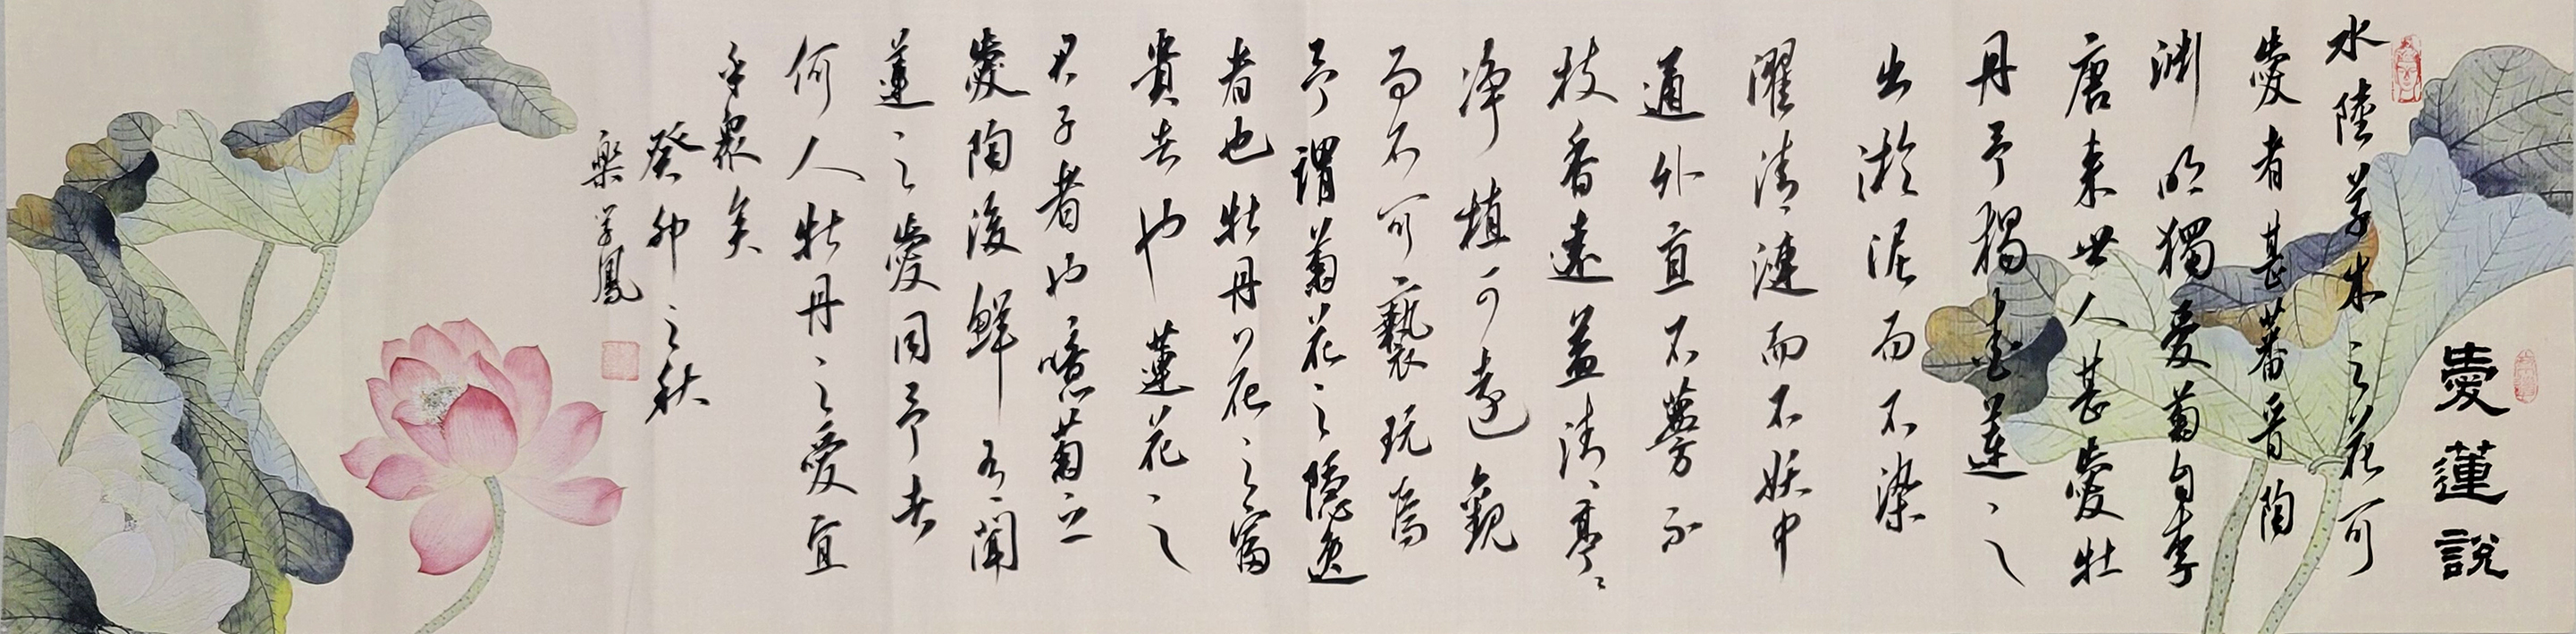 愛蓮說
水陸草木之花可
愛者甚蕃晉陶
淵明獨愛菊自李
唐來世人甚愛牡
丹予獨愛蓮之
出淤泥而不染
濯清漣而不妖中
通外直不蔓不
枝香遠益清亭亭
淨植可遠觀
而不可褻玩焉
予謂菊花之隱逸
者也牡丹花之富
貴者也蓮花之
君子者也噫菊之
愛陶後鮮有聞
蓮之愛同予者
何人牡丹之愛宜
乎眾矣
癸卯之秋